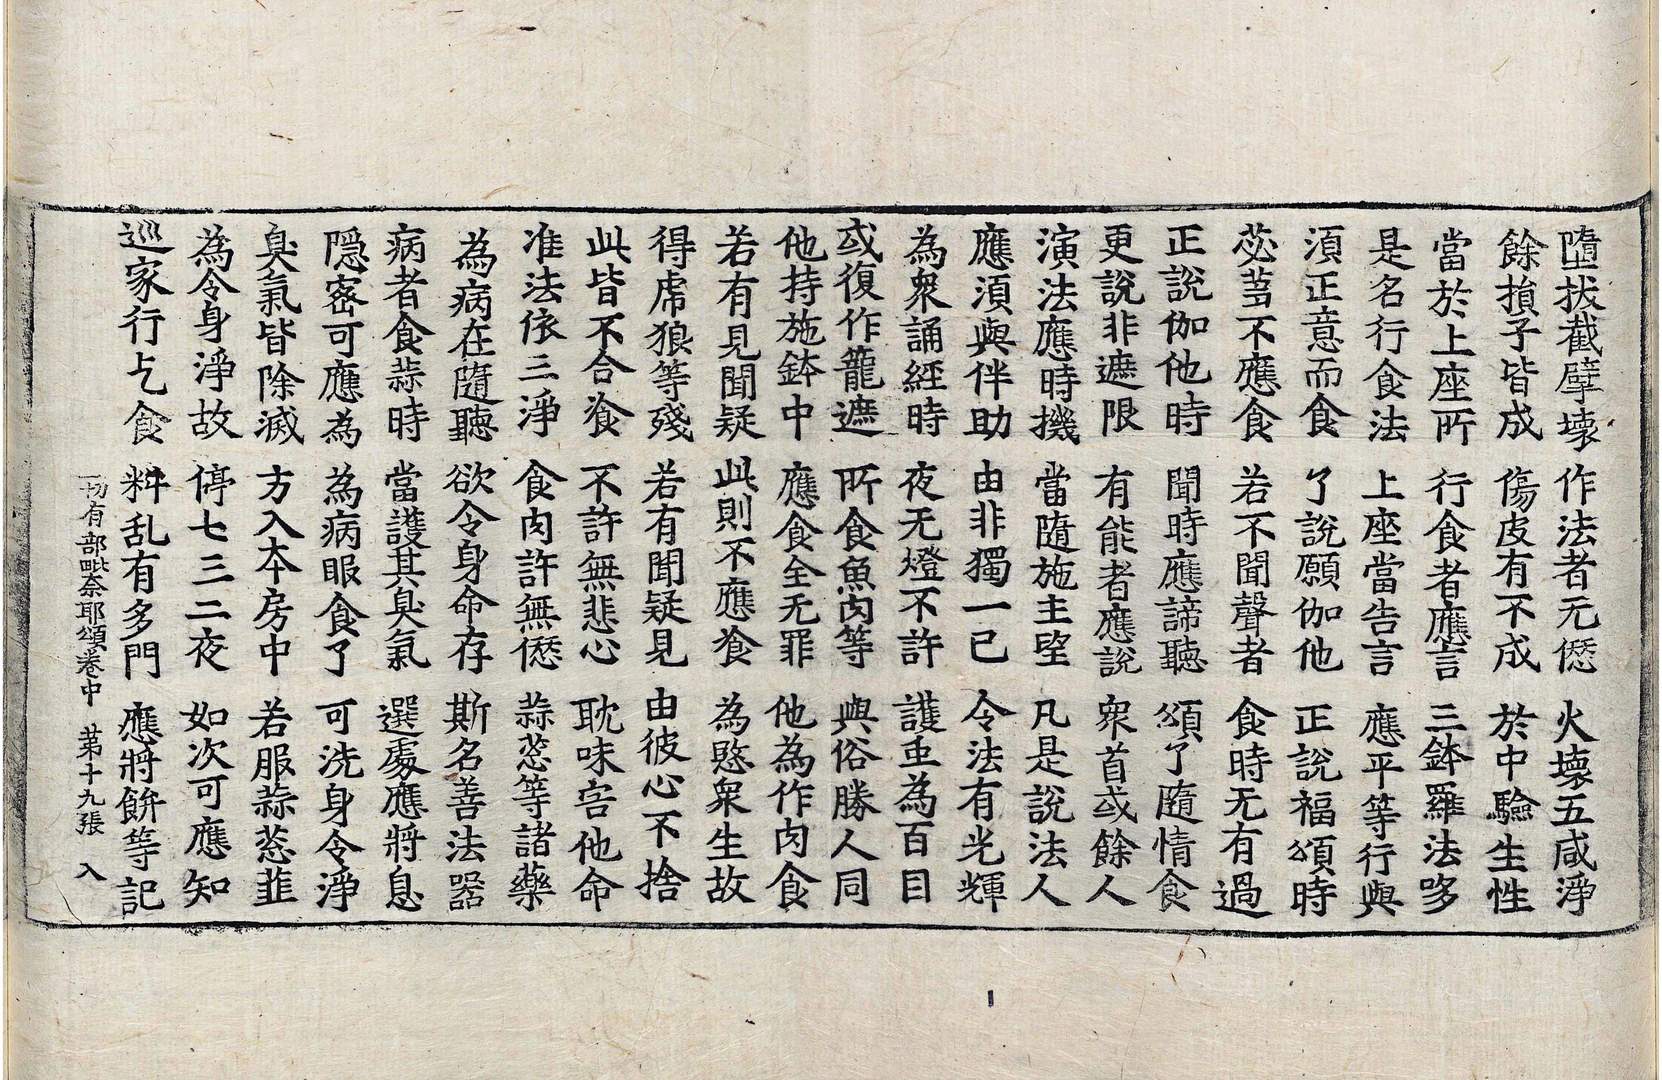 墮拔截擘壞 作法者无愆 火壞五咸淨
餘損子皆成 傷皮有不成 於中驗生性
當於上座所 行食者應言 三鉢羅法哆
是名行食法 上座當告言 應平等行與
湏正意而食 了說願伽他 正說福頌時
苾蒭不應食 若不聞聲者 食時无有過
正說伽他時 聞時應諦聽 頌了隨情食
更說非遮限 有能者應說 衆首或餘人
演法應時機 當隨施主望 凡是說法人
應湏與伴助 由非獨一已 令法有光輝
為衆誦經時 夜无燈不許 護重為百目
或復作籠遮 所食魚肉等 與俗勝人同
他持施鉢中 應食全无罪 他為作肉食
若有見聞疑 此則不應飡 為愍衆生故
得虎狼等殘 若有聞疑見 由彼心不捨
此皆不合飡 不許無悲心 耽味害他命
准法依三淨 食肉許無愆 蒜葱等諸藥
為病在隨聽 欲令身命存 斯名善法器
病者食蒜時 當護其臭氣 選處應將息
隱密可應為 為病眼食了 可洗身令淨
臭氣皆除滅 方入本房中 若服蒜葱韮
為令身淨故 停七三二夜 如次可應知
巡家行乞食 粆乱有多門 應將餅等記
一切有部毗奈耶頌卷中 苐十九張 入